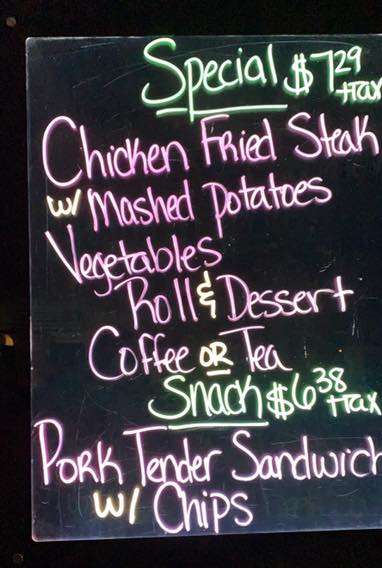 Special $7.29 +tax
Chicken Fried Steak
w/ Mashed Potatoes
Vegetables
Roll & Dessert
Coffee OR Tea
Snack $6.38 +tax
Pork Tender Sandwich
w/ Chips